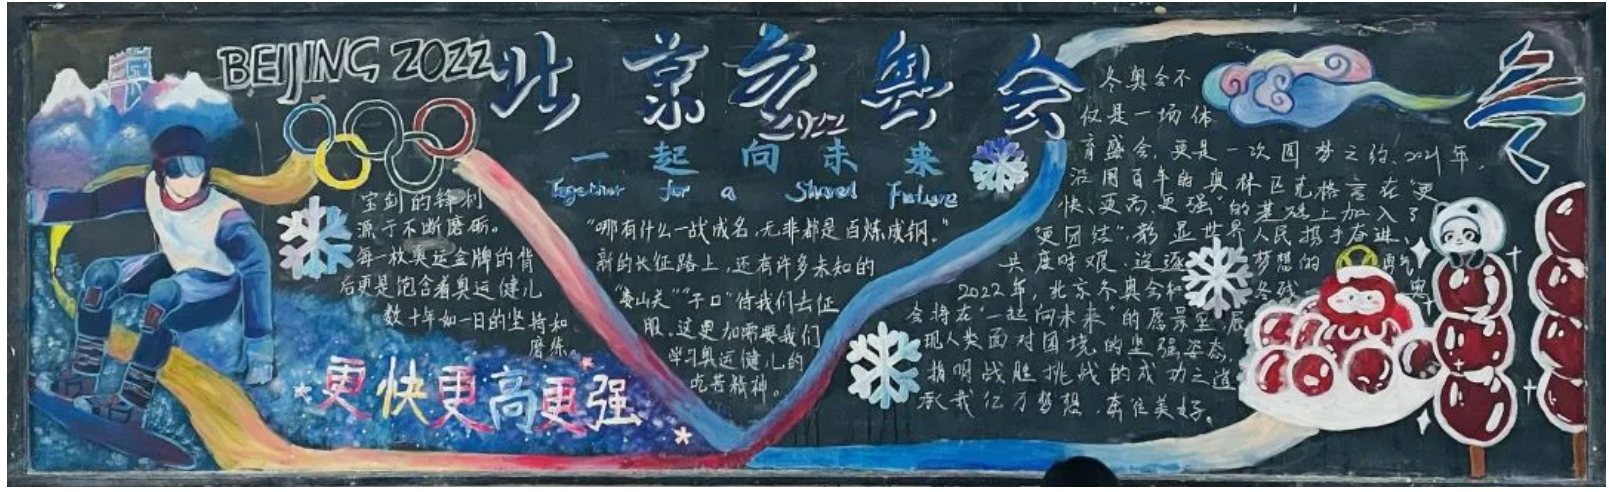 BEIJING 2022
北京冬奥会
2022
一起向未来
Together for a Shared Future
宝剑的锋利
源于不断磨砺。
每一枚奥运金牌的背
后更是饱含着奥运健儿
数十年如一日的坚持和
磨练。
更快更高更强
“哪有什么一战成名,无非都是百炼成钢。”
新的长征路上,还有许多未知的
“娄山关”“子口”待我们去征
服,这更加需要我们
学习奥运健儿的
吃苦精神。
冬奥会不
仅是一场体
育盛会,更是一次圆梦之约!2021年,
沿用百年的奥林匹克格言在“更
快、更高、更强”的基础上加入了
“更团结”,彰显世界人民携手奋进、
共度时艰、追逐梦想的勇气
2022年,北京冬奥会和冬残奥
会将在“一起向未来”的愿景里,展
现人类面对困境的坚强姿态,
指明战胜挑战的成功之道
承载亿万梦想,奔往美好。